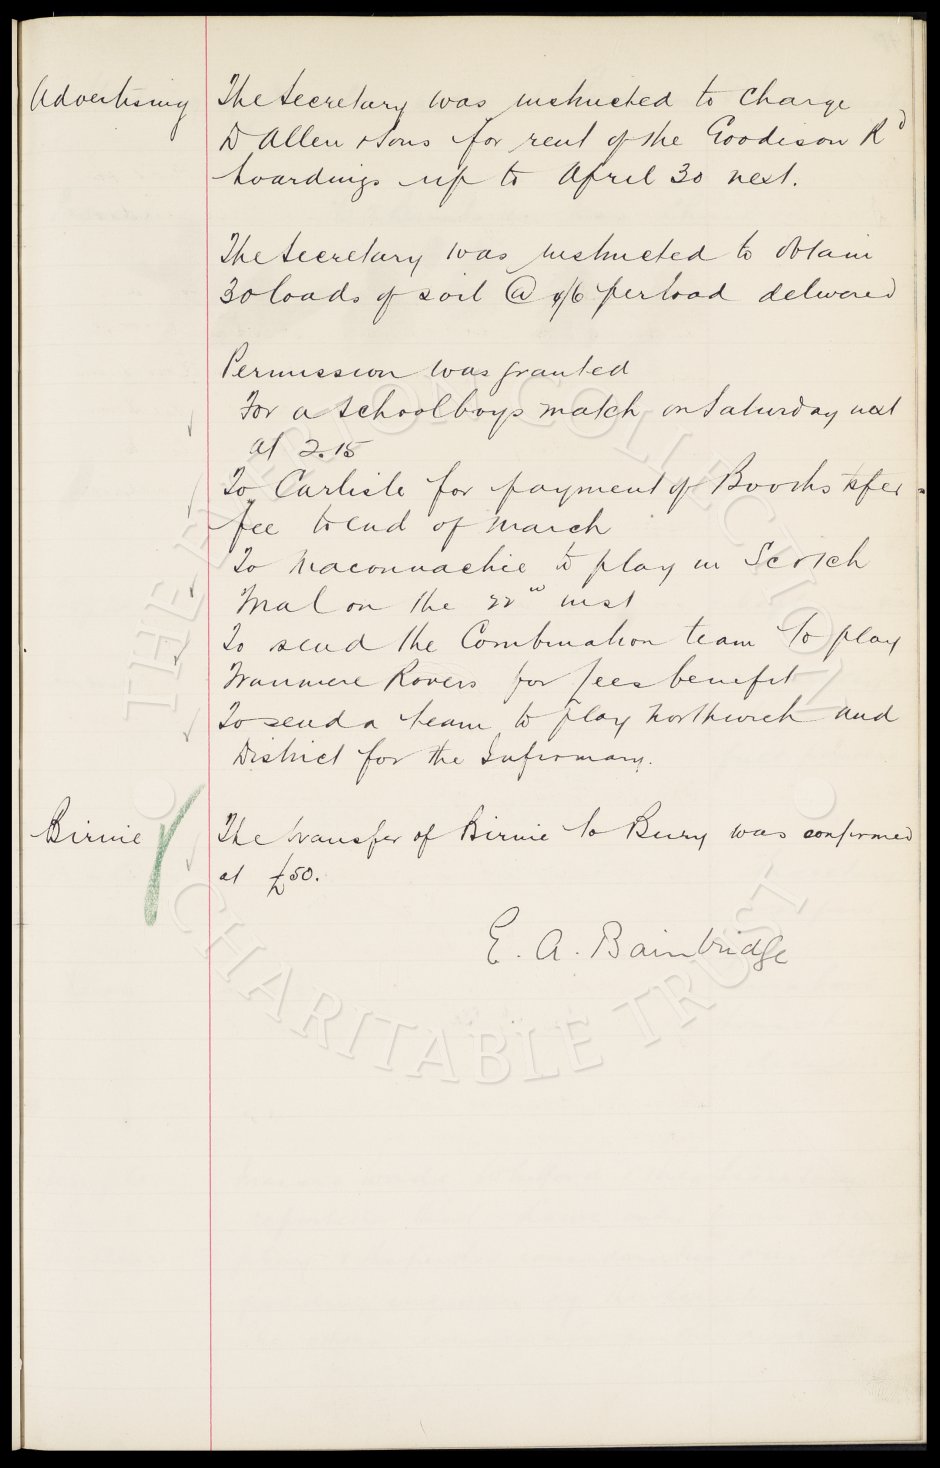 Advertising The Secretary was instructed to charge
D Allen & Sons for rent of the Goodison Rd
hoardings up to April 30 next.
The Secretary was instructed to obtain
30 loads of soil @ /6 per load delivered
Permission was granted
For a schoolboys match on Saturday next
at 2.15
To Carlisle for payment of Booths tsfer
fee to end of March
To Maconnachie to play in Scotch
Trial on the 22nd inst
To send the Combination team to play
Tranmere Rovers for benefit
To send a team to play Northwich and
District for the Infirmary.
Birnie The transfer of Birnie to Bury was confirmed
at £50.
E. A. Bainbridge
THE EVERTON COLLECTION
CHARITABLE TRUST